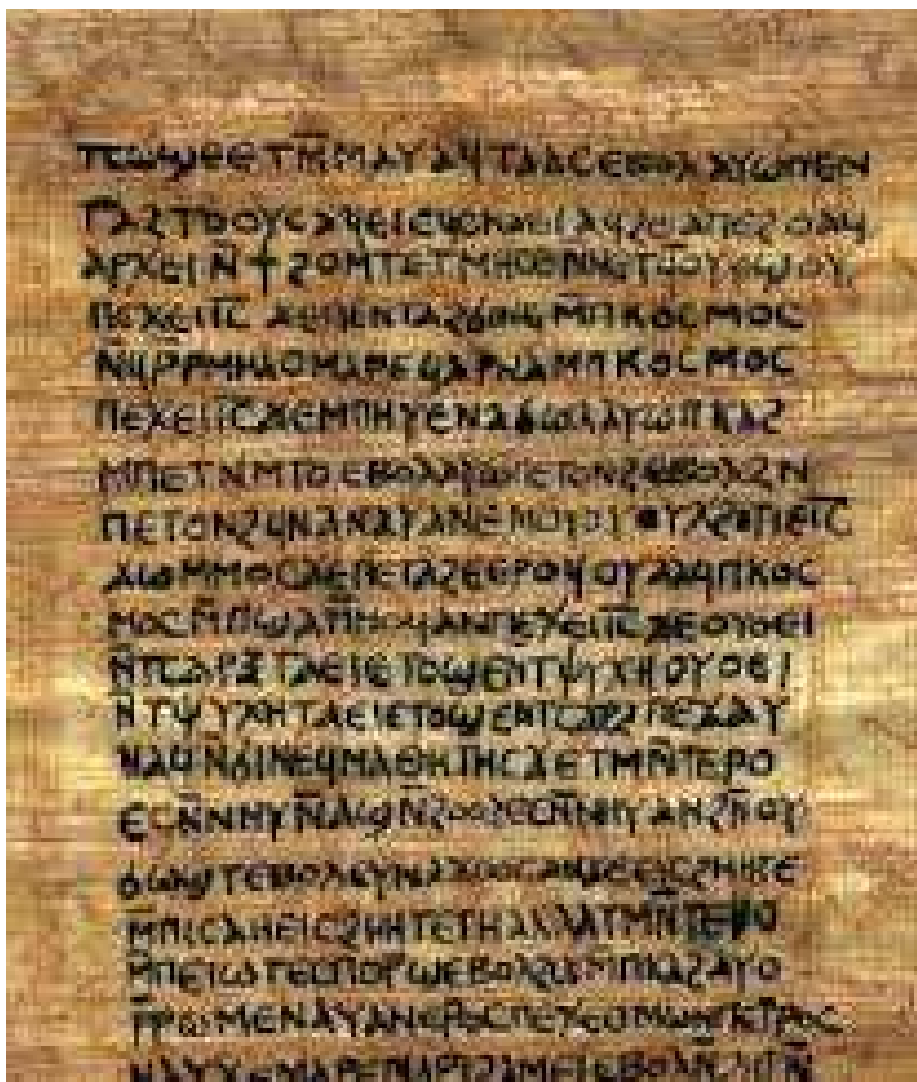 ⲧⲥⲱϣⲉ ⲉⲧⲙ̅ⲙⲁⲩ ⲁϥⲧⲁⲁⲥ ⲉⲃⲟⲗ ⲁⲩⲱ ⲡⲉⲛ
ⲧⲁϩⲧⲟⲟⲩⲥ ⲁϥⲉⲓ ⲉϥⲥⲕⲁⲉⲓ ⲁϥϩⲉ ⲁⲡⲉϩⲟ ⲁϥ
ⲁⲣⲭⲉⲓ ⲛ̅ϯ ϩⲟⲙⲧ ⲉⲧⲙⲏⲥⲉ ⲛ̅ⲛⲉⲧϥⲟⲩⲟϣⲟⲩ
ⲡⲉϫⲉ ⲓ̅ⲥ̅ ϫⲉ ⲡⲉⲛⲧⲁϩϭⲓⲛⲉ ⲙ̅ⲡⲕⲟⲥⲙⲟⲥ
ⲛ̅ϥⲣ̅ ⲣⲙ̅ⲙⲁⲟ ⲙⲁⲣⲉϥⲁⲣⲛⲁ ⲙ̅ⲡⲕⲟⲥⲙⲟⲥ
ⲡⲉϫⲉ ⲓ̅ⲥ̅ ϫⲉ ⲙ̅ⲡⲏⲩⲉ ⲛⲁϭⲱⲗ ⲁⲩⲱ ⲡⲕⲁϩ
ⲙ̅ⲡⲉⲧⲛ̅ⲙ̅ⲧⲟ ⲉⲃⲟⲗ ⲁⲩⲱ ⲡⲉⲧⲟⲛϩ ⲉⲃⲟⲗ ϩⲛ̅
ⲡⲉⲧⲟⲛϩ ϥⲛⲁⲛⲁⲩ ⲁⲛ ⲉⲙⲟⲩ
ϫⲱ ⲙ̅ⲙⲟⲥ ϫⲉ ⲡⲉⲧⲁϩⲉ ⲉⲣⲟϥ ⲟⲩⲁⲁϥ ⲡⲕⲟⲥ
ⲙⲟⲥ ⲙ̅ⲡϣⲁ ⲙ̅ⲙⲟϥ ⲁⲛ ⲡⲉϫⲉ ⲓ̅ⲥ̅ ϫⲉ ⲟⲩⲟⲉⲓ
ⲛ̅ⲧⲥⲁⲣⲝ ⲧⲁⲉⲓ ⲉⲧⲟϣⲉ ⲛ̅ⲧⲯⲩⲭⲏ ⲟⲩⲟⲉⲓ
ⲛ̅ⲧⲯⲩⲭⲏ ⲧⲁⲉⲓ ⲉⲧⲟϣⲉ ⲛ̅ⲧⲥⲁⲣⲝ ⲡⲉϫⲁⲩ
ⲛⲁϥ ⲛ̅ϭⲓ ⲛⲉϥⲙⲁⲑⲏⲧⲏⲥ ϫⲉ ⲧⲙⲛ̅ⲧⲉⲣⲟ
ⲉⲥⲛ̅ⲛⲏⲩ ⲛ̅ⲁϣ ⲛ̅ϩⲟⲟⲩ ⲉⲥⲛ̅ⲛⲏⲩ ⲁⲛ ϩⲛ̅ ⲟⲩ
ϭⲱϣⲧ ⲉⲃⲟⲗ ⲉⲩⲛⲁϫⲟⲟⲥ ⲁⲛ ϫⲉ ⲉⲓⲥϩⲏⲏⲧⲉ
ⲙ̅ⲡⲓⲥⲁ ⲏ ⲉⲓⲥϩⲏⲏⲧⲉ ⲧⲏ ⲁⲗⲗⲁ ⲧⲙⲛ̅ⲧⲉⲣⲟ
ⲙ̅ⲡⲉⲓⲱⲧ ⲉⲥⲡⲟⲣϣ ⲉⲃⲟⲗ ϩⲓϫⲙ̅ ⲡⲕⲁϩ ⲁⲩⲱ
ⲣ̅ⲣⲱⲙⲉ ⲛⲁⲩ ⲁⲛ ⲉⲣⲟⲥ ⲡⲉϫⲉ ⲥⲓⲙⲱⲛ ⲡⲉⲧⲣⲟⲥ
ⲛⲁⲩ ϫⲉ ⲙⲁⲣⲉ ⲙⲁⲣⲓϩⲁⲙ ⲉⲓ ⲉⲃⲟⲗ ⲛ̅ϩⲏⲧⲛ̅